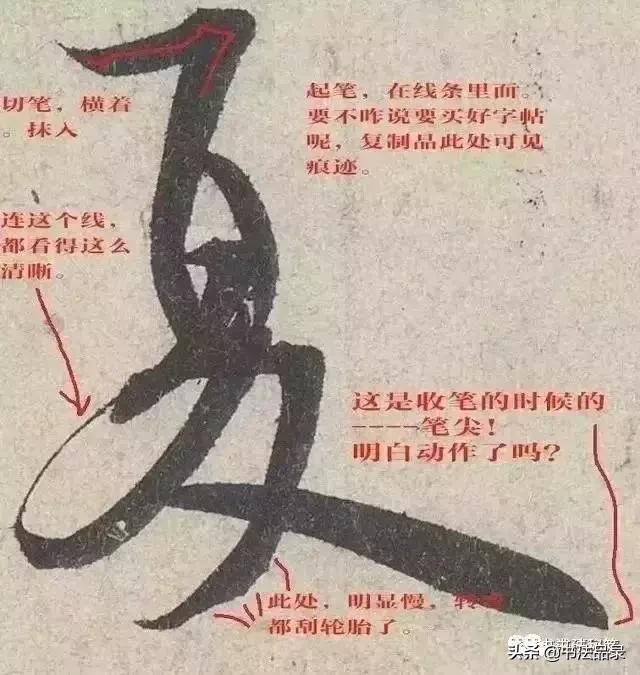 夏
切笔，横着
。抹入
起笔，在线条里面。
要不咋说要买好字帖
呢，复制品此处可见
痕迹。
连这个线，
都看得这么
清晰。
这是收笔的时候的
----笔尖！
明白动作了吗？
此处，明显慢，转
都刮轮胎了。
头条 @书法品录